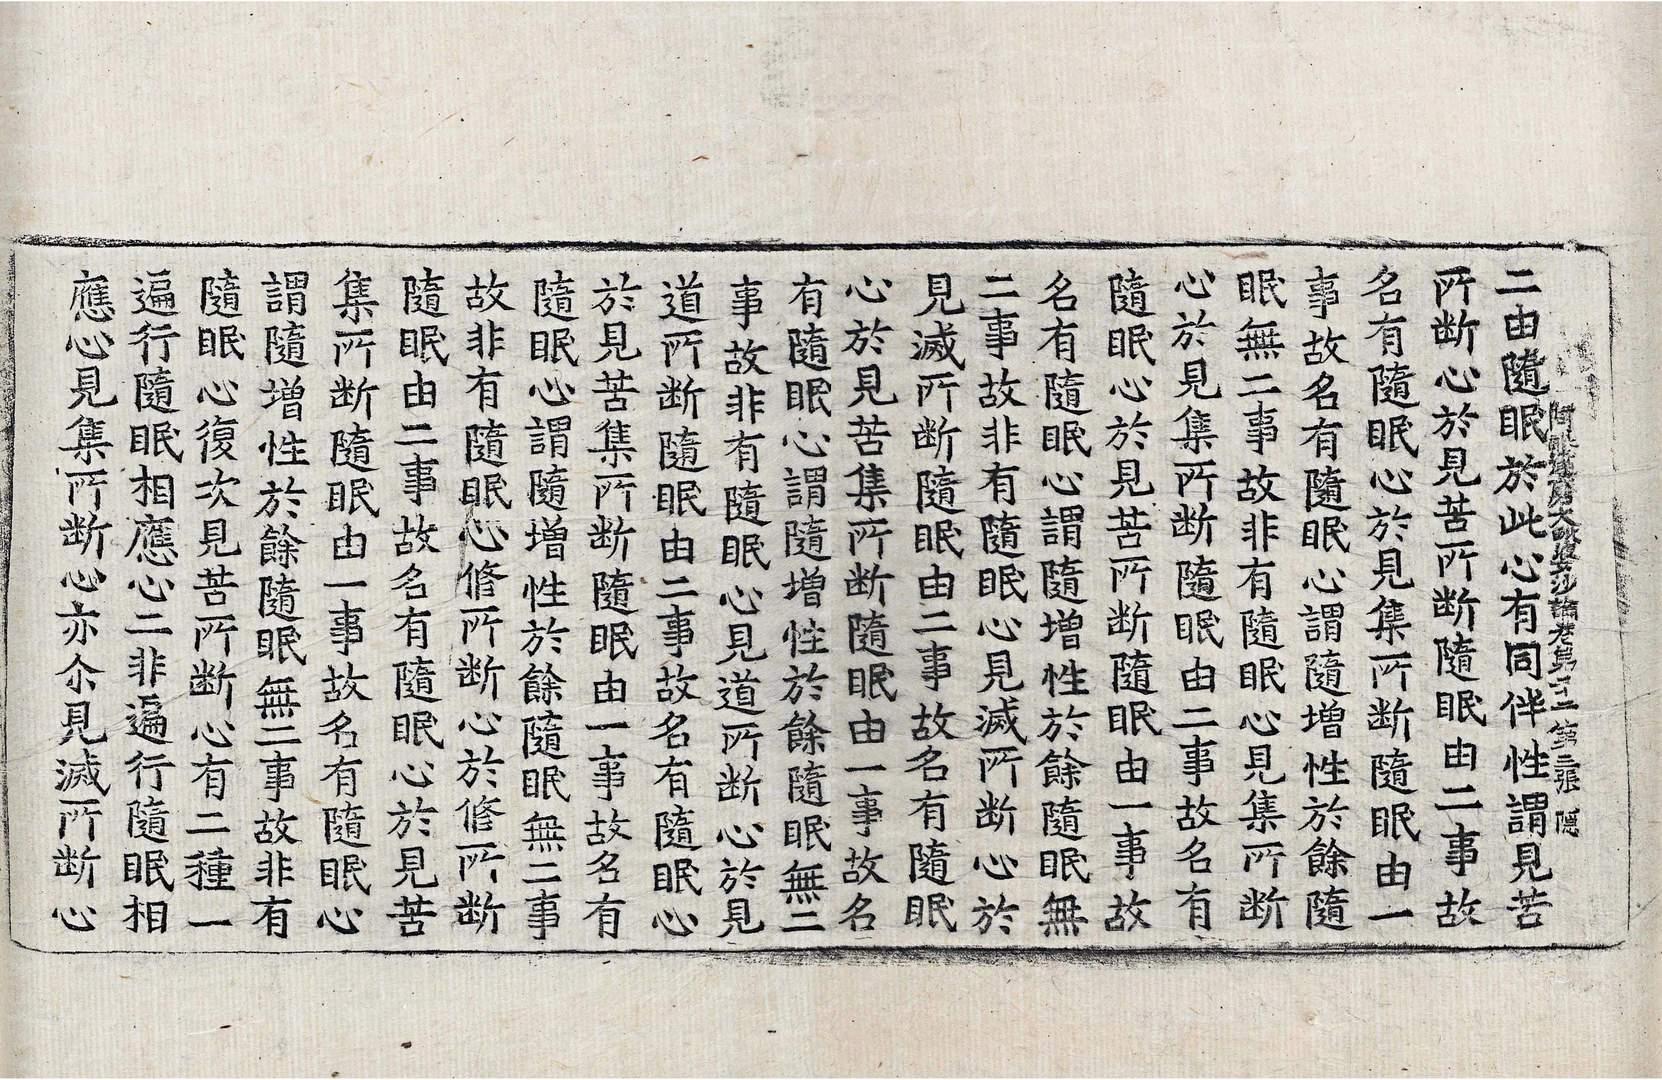 阿毗達磨大毗婆沙論卷第二十二 第二張 隱
二由隨眠於此心有同伴性謂見苦
所断心於見苦所断隨眠由二事故
名有隨眠心於見集所断隨眠由一
事故名有隨眠心謂隨增性於餘隨
眠無二事故非有隨眠心見集所断
心於見集所断隨眠由二事故名有
隨眠心於見苦所断隨眠由一事故
名有隨眠心謂隨增性於餘隨眠無
二事故非有隨眠心見滅所断心於
見滅所断隨眠由二事故名有隨眠
心於見苦集所断隨眠由一事故名
有隨眠心謂隨增性於餘隨眠無二
事故非有隨眠心見道所断心於見
道所断隨眠由二事故名有隨眠心
於見苦集所断隨眠由一事故名有
隨眠心謂隨增性於餘隨眠無二事
故非有隨眠心修所断心於修所断
隨眠由二事故名有隨眠心於見苦
集所断隨眠由一事故名有隨眠心
謂隨增性於餘隨眠無二事故非有
隨眠心復次見苦所断心有二種一
遍行隨眠相應心二非遍行隨眠相
應心見集所断心亦尒見滅所断心